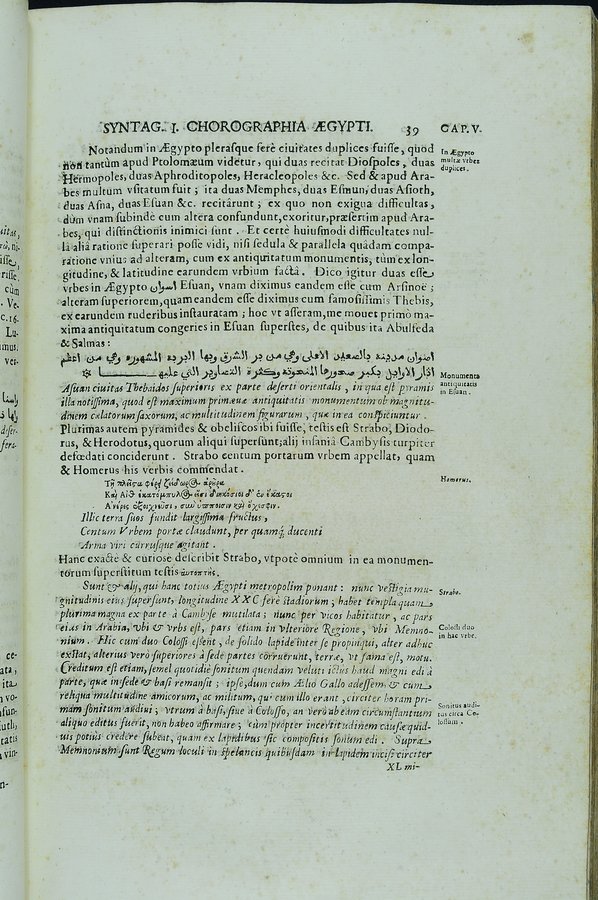 SYNTAG. I. CHOROGRAPHIA ÆGYPTI. 39 CAP. V.
Notandum in Ægypto plerasque ferè ciuitates duplices fuisse, quod
non tantùm apud Ptolomæum videtur, qui duas recitat Diospoles, duas
Hermopoles, duas Aphroditopoles, Heracleopoles &c. Sed & apud Ara-
bes multum vsitatum fuit; ita duas Memphes, duas Esmun, duas Asioth,
duas Asna, duas Esuan &c. recitârunt; ex quo non exigua difficultas,
dùm vnam subindè cum altera confundunt, exoritur, præsertim apud Ara-
bes, qui distinctionis inimici sunt. Et certè huiusmodi difficultates nul-
la aliâ ratione superari posse vidi, nisi sedula & parallela quâdam compa-
ratione vnius ad alteram, cum ex antiquitatum monumentis, tùm ex lon-
gitudine, & latitudine earundem vrbium factâ. Dico igitur duas esse
vrbes in Ægypto اسوان Esuan, vnam diximus eandem esse cum Arsinoë;
alteram superiorem, quam eandem esse diximus cum famosissimis Thebis,
ex earundem ruderibus instauratam; hoc vt asseram, me mouet primò ma-
xima antiquitatum congeries in Esuan superstes, de quibus ita Abulfeda
& Salmas:
اصوان مدينه بالصعيد الاعلي وفي من بر الشرق وبها البربه المشهوره وفي من اعظم
اثار الاولين بكبر صخورها المنحوته وكثرة التصاوير التي عليها
Asuan ciuitas Thebaidos superioris ex parte deserti orientalis, in qua est pyramis
illa notissima, quod est maximum primæuæ antiquitatis monumentum ob magnitu-
dinem cælatorum saxorum, ac multitudinem figurarum, quæ in ea conspiciuntur.
Plurimas autem pyramides & obeliscos ibi fuisse, testis est Strabo, Diodo-
rus, & Herodotus, quorum aliqui supersunt; alij insaniâ Cambysis turpiter
defœdati conciderunt. Strabo centum portarum vrbem appellat, quam
& Homerus his verbis commendat.
Illic terra suos fundit largissima fructus,
Centum Vrbem portæ claudunt, per quamq́; ducenti
Arma viri currusque agitant.
Hanc exactè & curiosè describit Strabo, vtpotè omnium in ea monumen-
torum superstitum testis αυτοπτης.
Sunt & alij, qui hanc totius Ægypti metropolim ponant: nunc vestigia ma-
gnitudinis eius supersunt, longitudine XXC ferè stadiorum; habet templa quam
plurima magna ex parte à Cambyse mutilata; nunc per vicos habitatur, ac pars
eius in Arabia, vbi & vrbs est, pars etiam in vlteriore Regione, vbi Memno-
nium. Hic cum duo Colossi essent, de solido lapide inter se propinqui, alter adhuc
exstat, alterius verò superiores à sede partes corruerunt, terræ, vt fama est, motu.
Creditum est etiam, semel quotidiè sonitum quendam veluti ictus haud magni edi à
parte, quæ in sede & basi remansit; ipse, dum cum Ælio Gallo adessem, & cum
reliqua multitudine amicorum, ac militum, qui cum illo erant, circiter horam pri-
mam sonitum audiui; vtrum à basi, siue à Colosso, an verò ab eam circumstantium
aliquo editus fuerit, non habeo affirmare; cùm propter incertitudinem causæ quid-
uis potiùs credere subeat, quam ex lapidibus sic compositis sonum edi. Supra
Memnonium sunt Regum loculi in speluncis quibusdam in lapidem incisi circiter
XL mi-
In Ægypto
multæ vrbes
duplices.
Monumenta
antiquitatis
in Esuan.
Homerus.
Strabo.
Colossi duo
in hac vrbe.
Sonitus audi-
tus circa Co-
lossum.